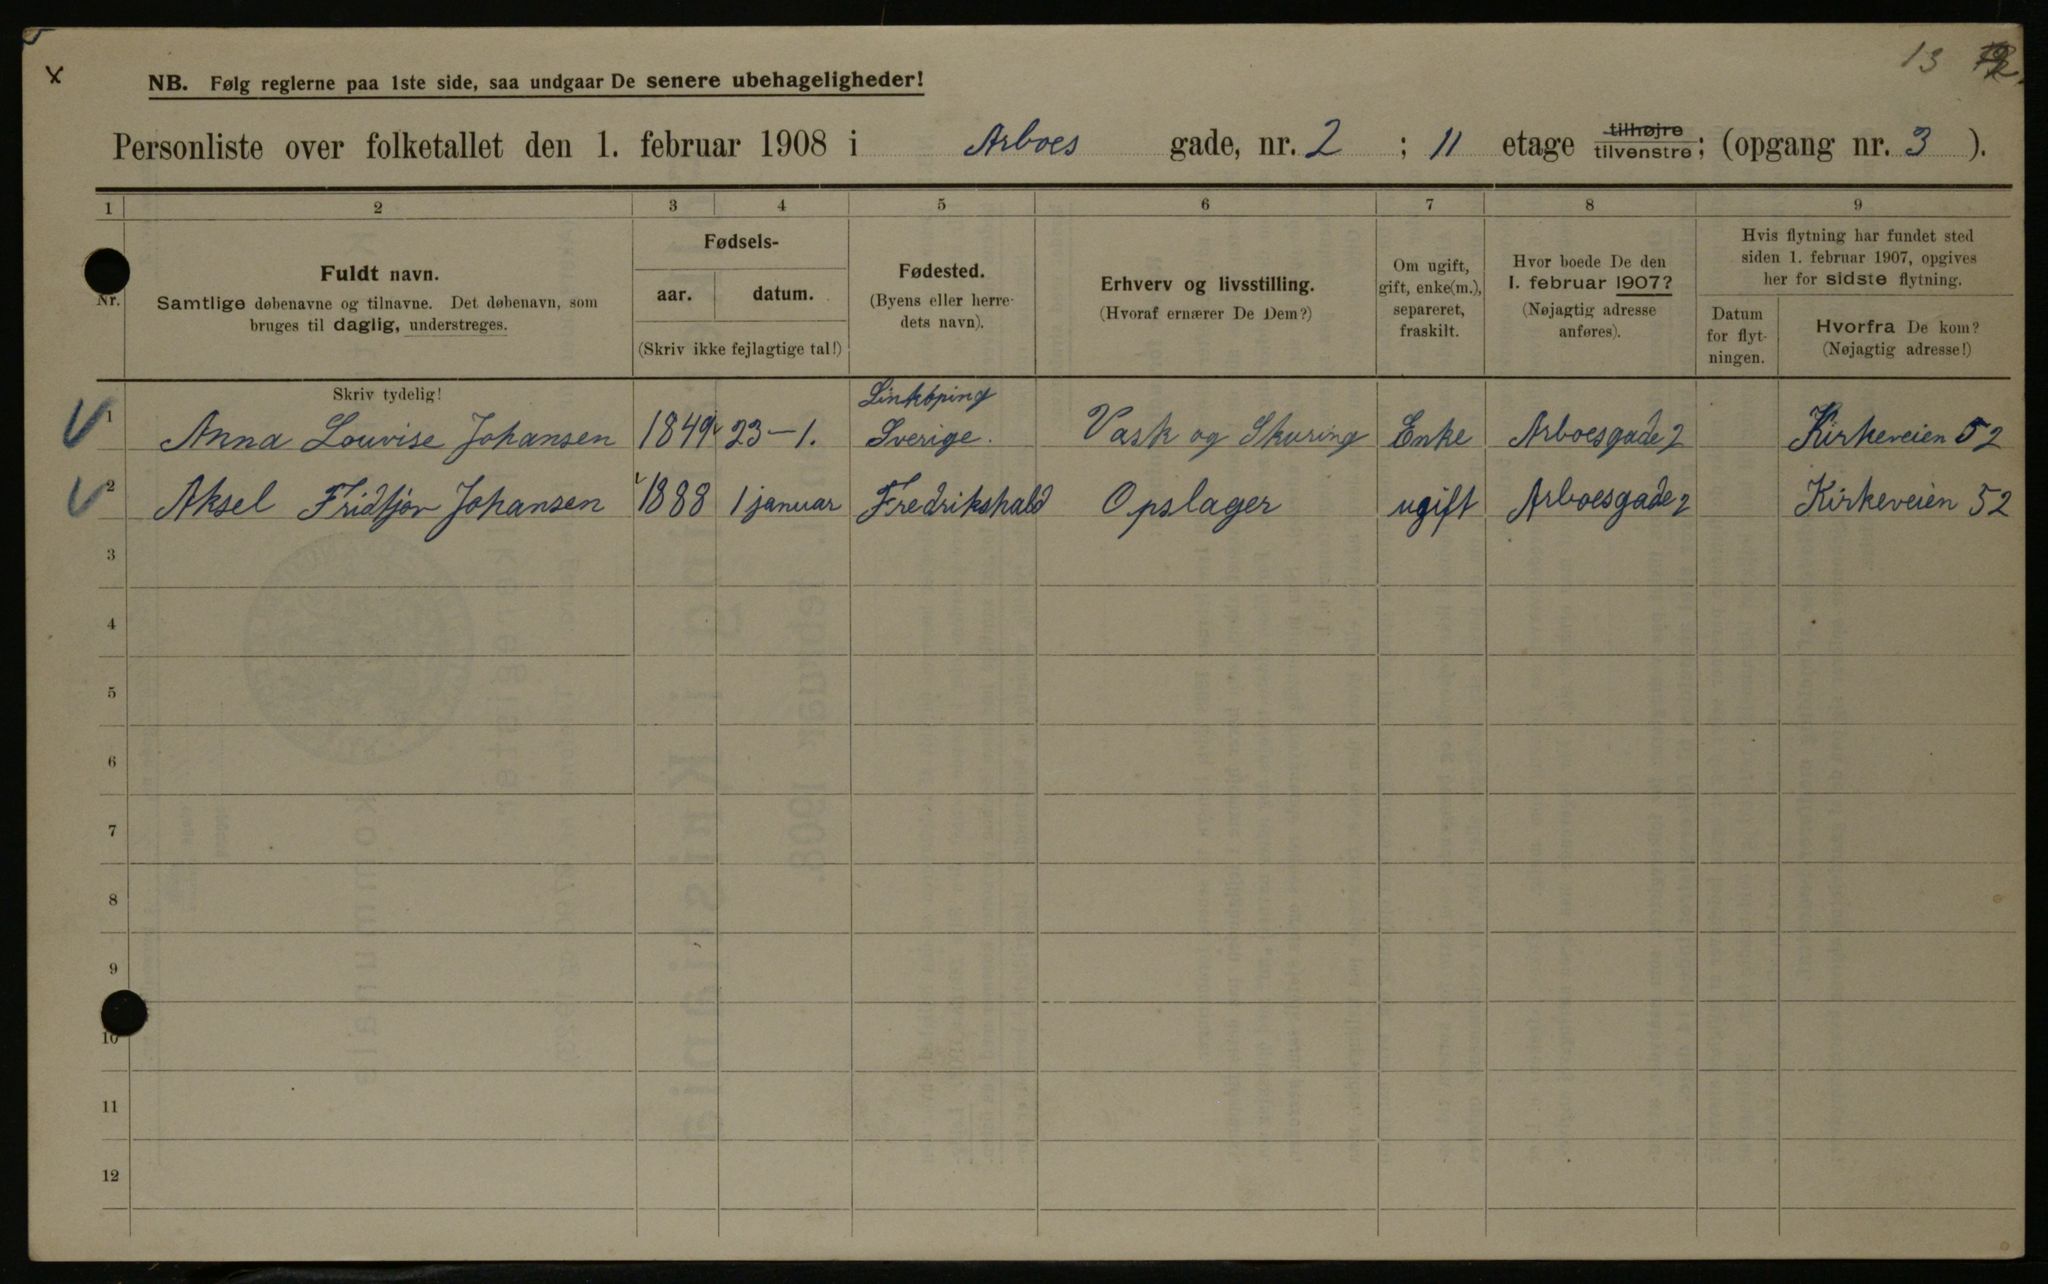 13
NB. Følg reglerne paa 1ste side, saa undgaar De senere ubehageligheder!
Personliste over folketallet den 1. februar 1908 i Arboes gade, nr. 2 ; 11 etage tilhøjre tilvenstre; (opgang nr. 3 ).
1 2 3 4 5 6 7 8 9
Nr.
Fuldt navn.
Samtlige døbenavne og tilnavne. Det døbenavn, som
bruges til daglig, understreges.
Fødsels-
aar. datum.
(Skriv ikke fejlagtige tal!)
Fødested.
(Byens eller herre-
dets navn).
Erhverv og livsstilling.
(Hvoraf ernærer De Dem?)
Om ugift,
gift, enke(m.),
separeret,
fraskilt.
Hvor boede De den
1. februar 1907?
(Nøjagtig adresse
anføres).
Hvis flytning har fundet sted
siden 1. februar 1907, opgives
her for sidste flytning.
Datum
for flyt-
ningen.
Hvorfra De kom?
(Nøjagtig adresse!)
Skriv tydelig!
Linköping
1 Anna Louvise Johansen 1849 23-1. Sverige. Vask og Skuring Enke Arboesgade 2 Kirkeveien 52
2 Aksel Fridtjov Johansen 1888 1 januar Fredrikshald Opslager ugift Arboesgade 2 Kirkeveien 52
3
4
5
6
7
8
9
10
11
12